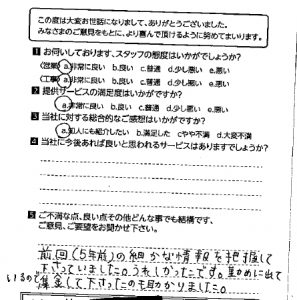 この度は大変お世話になりまして、ありがとうございました。
みなさまのご意見をもとに、より喜んで頂けるように努めてまいります。
1 お伺いしております、スタッフの態度はいかがでしょうか?
(営業) a.非常に良い b.良い c.普通 d.少し悪い e.悪い
(工事) a.非常に良い b.良い c.普通 d.少し悪い e.悪い
2 提供サービスの満足度はいかがですか?
a.非常に良い b.良い c.普通 d.少し悪い e.悪い
3 当社に対する総合的なご感想はいかがですか?
a.知人にも紹介したい b.満足した c.やや不満 d.大変不満
4 当社に今後あれば良いと思われるサービスはありますでしょうか?
5 ご不満な点、良い点その他どんな事でも結構です、
ご意見、ご要望をお聞かせ下さい。
前回(5年前)の細かな情報を把握して
下さっていました。うれしかったです。
いるので
して下さったのも助かりました。